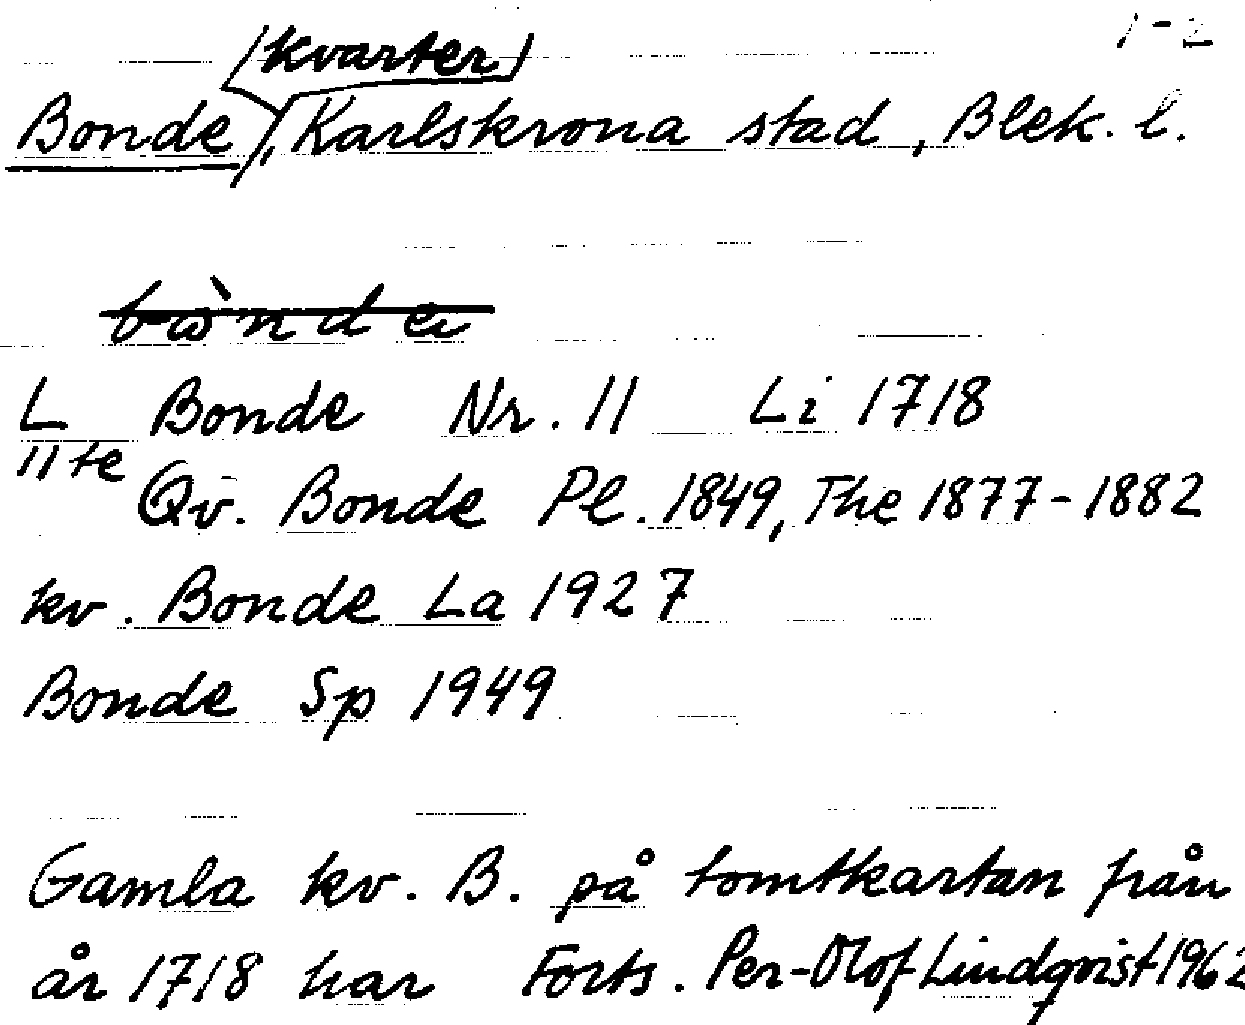 1-2
(kvarter)
Bonde, Karlskrona stad, Blek. l.
bònde
L Bonde Nr. 11 Li 1718
11te Qv. Bonde Pl. 1849, The 1877-1882
kv. Bonde La 1927
Bonde Sp 1949
Gamla kv. B. på tomtkartan från
år 1718 har Forts. Per-Olof Lindqvist 1962